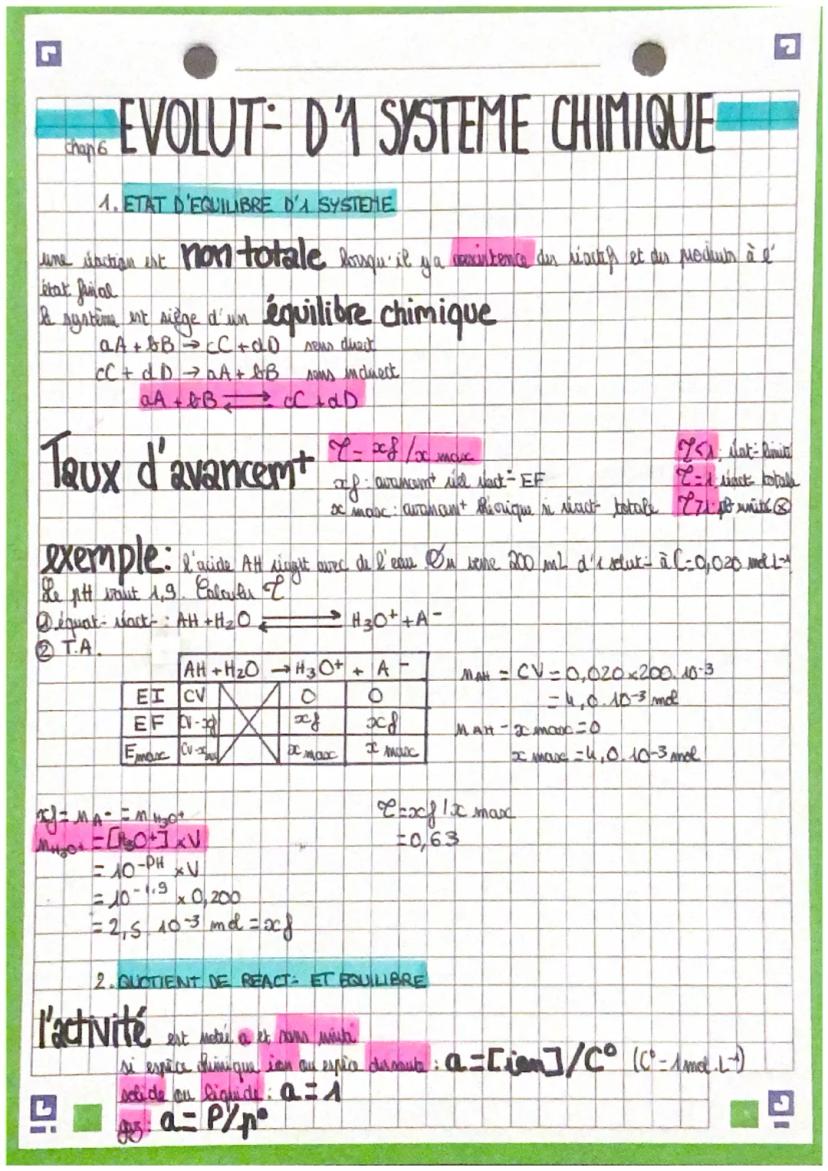 chap 6 EVOLUT° D'1 SYSTEME CHIMIQUE
1. ETAT D'EQUILIBRE D'1 SYSTEME
une réaction est non totale lorsqu'il y a coexistence des réactifs et des produits à l'
état final
le système est siège d'un équilibre chimique
aA + bB → cC + dD sens direct
cC + dD → aA + bB sens indirect
aA + bB ⇌ cC + dD
Taux d'avancemt
τ = xf / x max
xf : avancemt réel réact° EF
x max : avancemt théorique si réact° totale
τ<1 : réact° limité
τ=1 réact° totale
exemple : l'acide AH réagit avec de l'eau On verse 200 mL d'1 solut° à C=0,020 mol.L-1
Le pH vaut 1,9. Calculer τ
① équat° réact° : AH + H2O ⇌ H3O+ + A-
② T.A.
AH + H2O → H3O+ + A-
EI CV 0 0
EF CV-xf xf xf
Emax CV-xmax x max x max
nAH = CV = 0,020 × 200.10-3
= 4,0.10-3 mol
nAH - x max = 0
x max = 4,0.10-3 mol
xf = nA- = nH3O+
nH3O+ = [H3O+] × V
= 10-PH × V
= 10-1,9 × 0,200
= 2,5.10-3 mol = xf
τ = xf / x max
= 0,63
2. QUOTIENT DE REACT° ET EQUILIBRE
l'activité est notée a et sans unité
si espèce chimique ion ou espèce dissoute : a = [ion]/C° (C° = 1 mol.L-1)
solide ou liquide : a = 1
gaz : a = P/p°